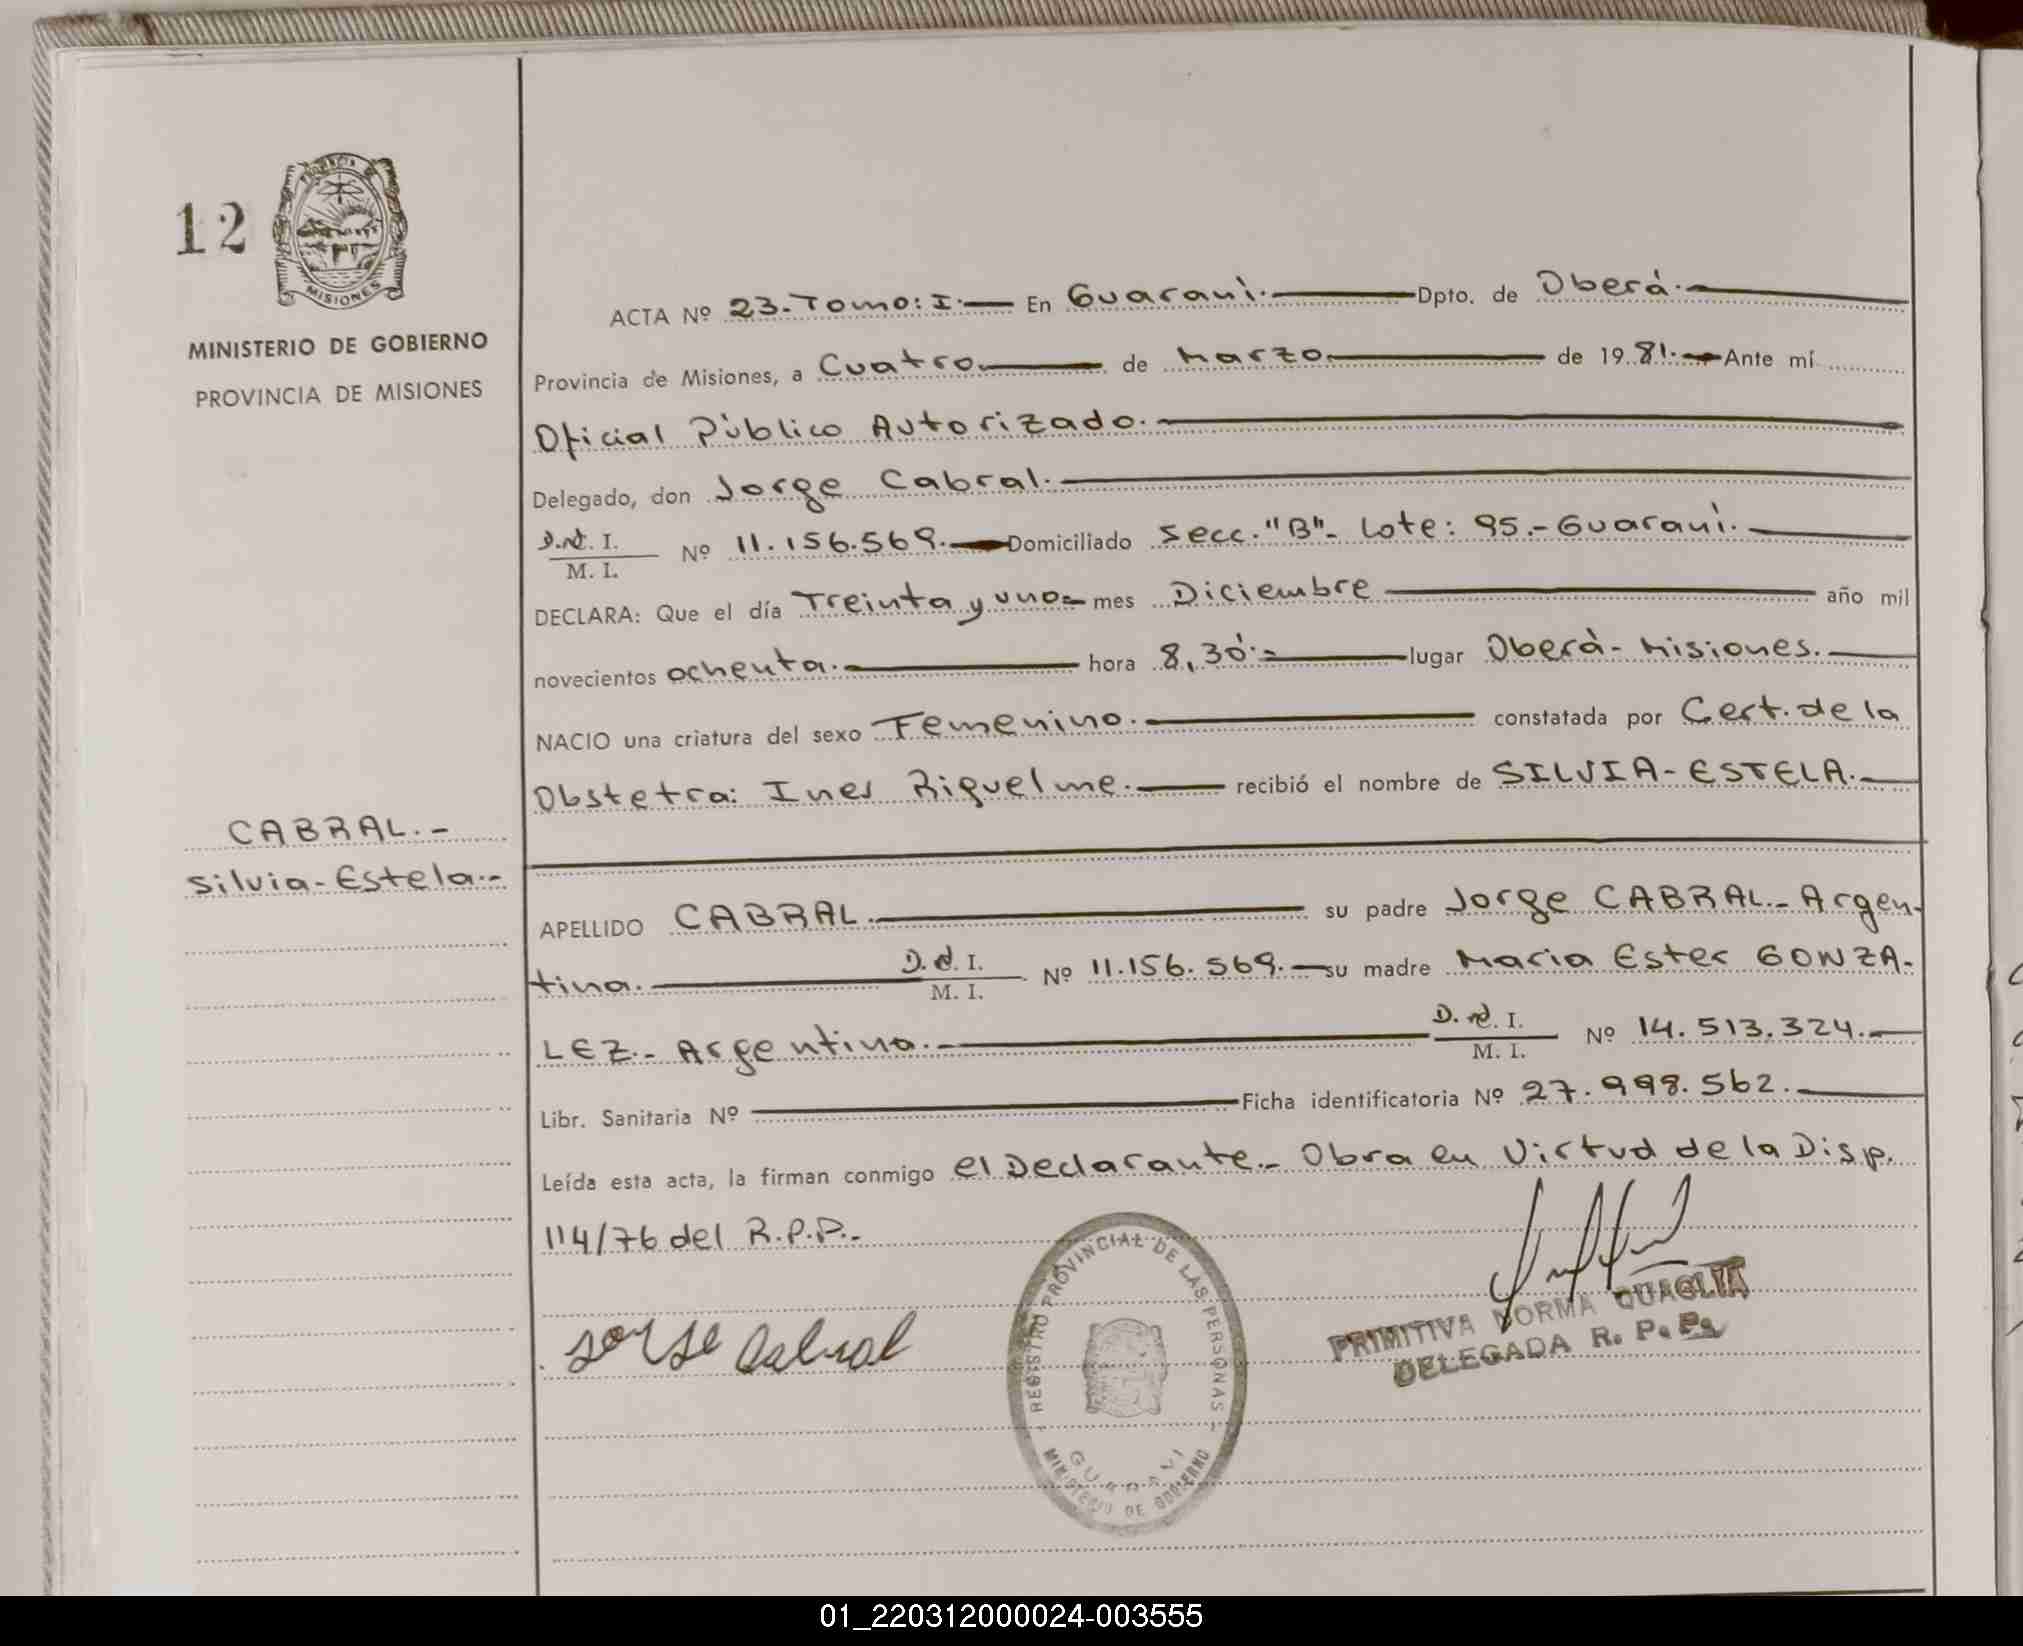 12
PROVINCIA DE
MISIONES
MINISTERIO DE GOBIERNO
PROVINCIA DE MISIONES
CABRAL.-
Silvia-Estela.-
ACTA Nº 23-Tomo: I.- En Guaraní. Dpto. de Oberá.-
Provincia de Misiones, a Cuatro de Marzo de 1981.- Ante mí
Oficial Público Autorizado.
Delegado, don Jorge Cabral.
D.N.I.
M. I.
Nº 11.156.569.- Domiciliado Secc. "B"- Lote: 95.- Guaraní.
DECLARA: Que el día Treinta y uno- mes Diciembre año mil
novecientos ochenta. hora 8,30.- lugar Oberá- Misiones.
NACIO una criatura del sexo Femenino. constatada por Cert. de la
Obstetra: Ines Riquelme. recibió el nombre de SILVIA-ESTELA.-
APELLIDO CABRAL. su padre Jorge CABRAL.- Argen-
tina. D.N.I.
M. I.
Nº 11.156.569.- su madre Maria Ester GONZA-
LEZ.- Argentina. D.N.I.
M. I.
Nº 14.513.324.-
Libr. Sanitaria Nº Ficha identificatoria Nº 27.998.562.
Leída esta acta, la firman conmigo el Declarante.- Obra en Virtud de la Disp.
114/76 del R.P.P.-
Jorge Cabral
REGISTRO PROVINCIAL DE LAS PERSONAS
GUARANI
MINISTERIO DE GOBIERNO
PRIMITIVA NORMA QUAGLIA
DELEGADA R. P. P.
01_220312000024-003555